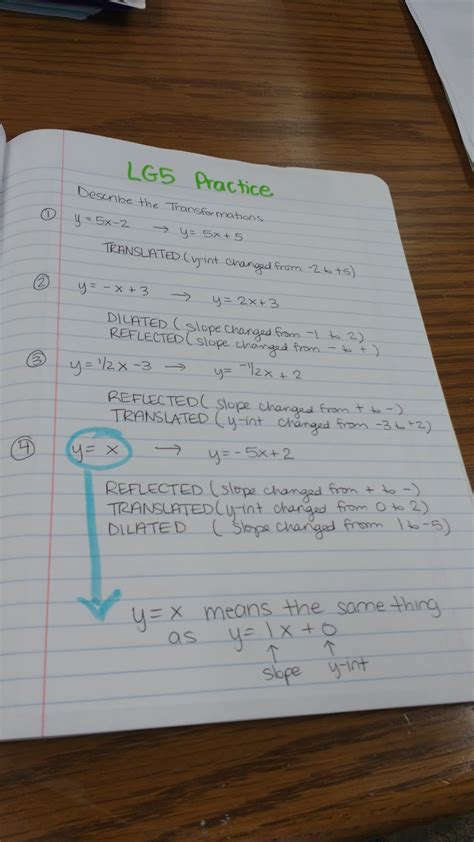 LG5 Practice
Describe the Transformations
① y = 5x-2 → y = 5x+5
TRANSLATED (y-int changed from -2 to +5)
② y = -x+3 → y = 2x+3
DILATED (slope changed from -1 to 2)
REFLECTED (slope changed from - to +)
③ y = 1/2x-3 → y = -1/2x+2
REFLECTED (slope changed from + to -)
TRANSLATED (y-int changed from -3 to +2)
④ y = x → y = -5x+2
REFLECTED (slope changed from + to -)
TRANSLATED (y-int changed from 0 to 2)
DILATED (slope changed from 1 to -5)
y = x means the same thing
as y = 1x+0
↑ ↑
slope y-int